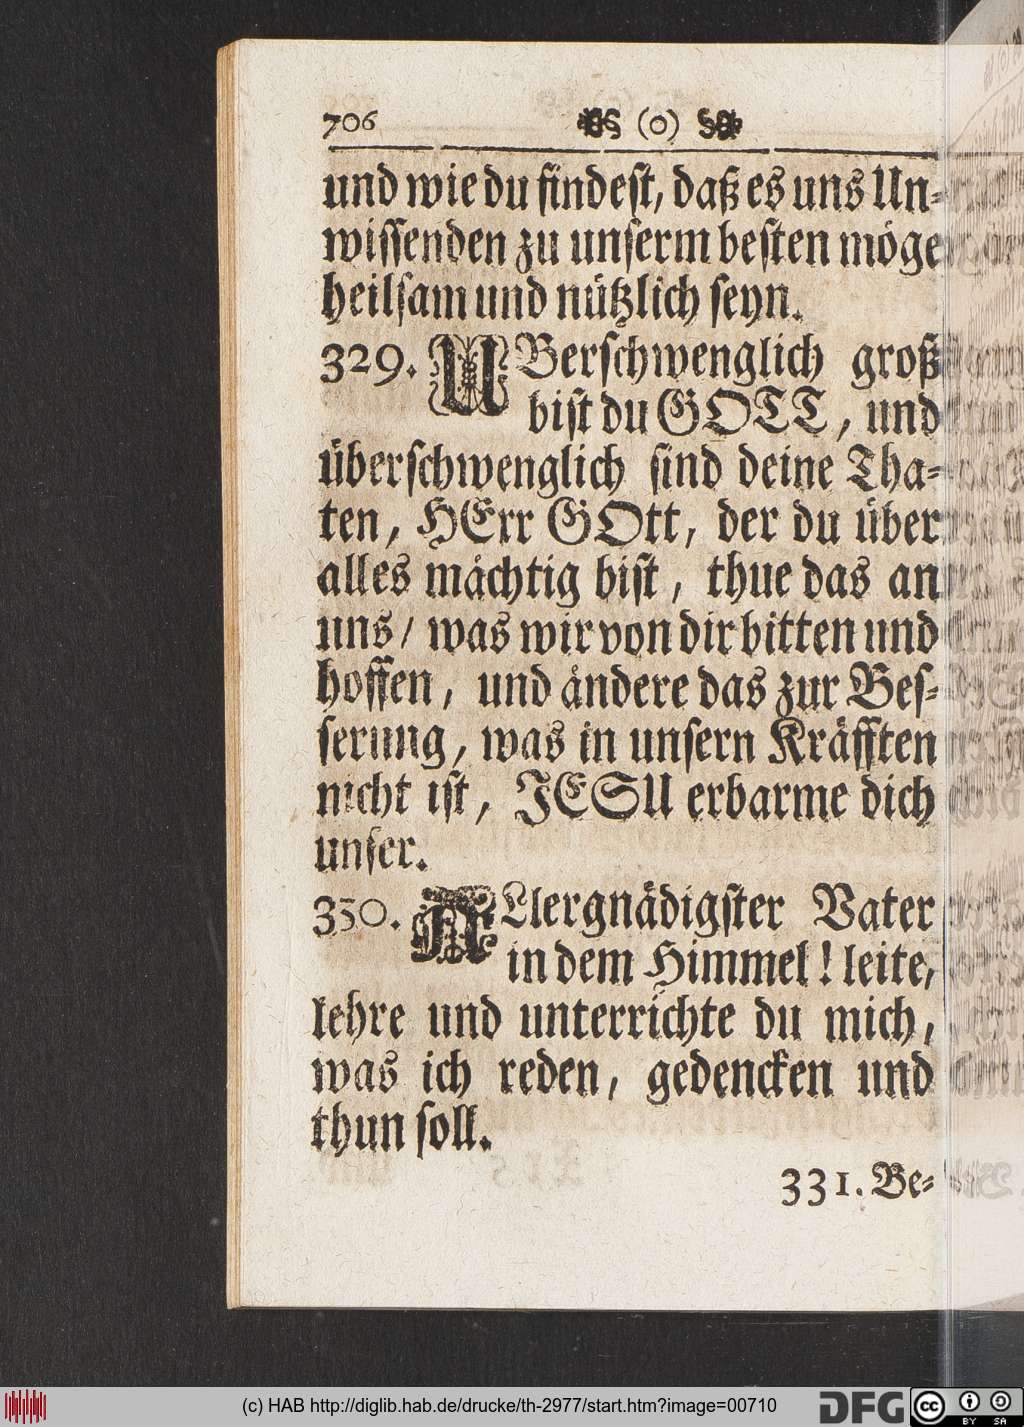 706 (o)
und wie du findest, daß es uns Un-
wissenden zu unserm besten möge
heilsam und nützlich seyn.
329. UBerschwenglich groß
bist du GOTT, und
überschwenglich sind deine Tha-
ten, HErr GOtt, der du über
alles mächtig bist, thue das an
uns/ was wir von dir bitten und
hoffen, und ändere das zur Bes-
serung, was in unsern Kräfften
nicht ist, JESU erbarme dich
unser.
330. ALlergnädigster Vater
in dem Himmel! leite,
lehre und unterrichte du mich,
was ich reden, gedencken und
thun soll.
331. Be-
(c) HAB http://diglib.hab.de/drucke/th-2977/start.htm?image=00710
DFG
cc BY SA